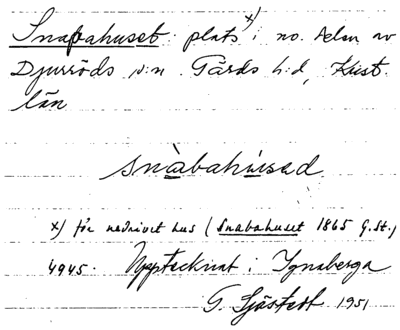 Snapahuset: plats x) i no. delen av
Djurröds s:n. Gärds h:d, Krist.
län
snàbahùsad
x) för nedrivet hus (Snabahuset 1865 G.St.)
4945. Upptecknat i Ignaberga
G. Sjöstedt 1951